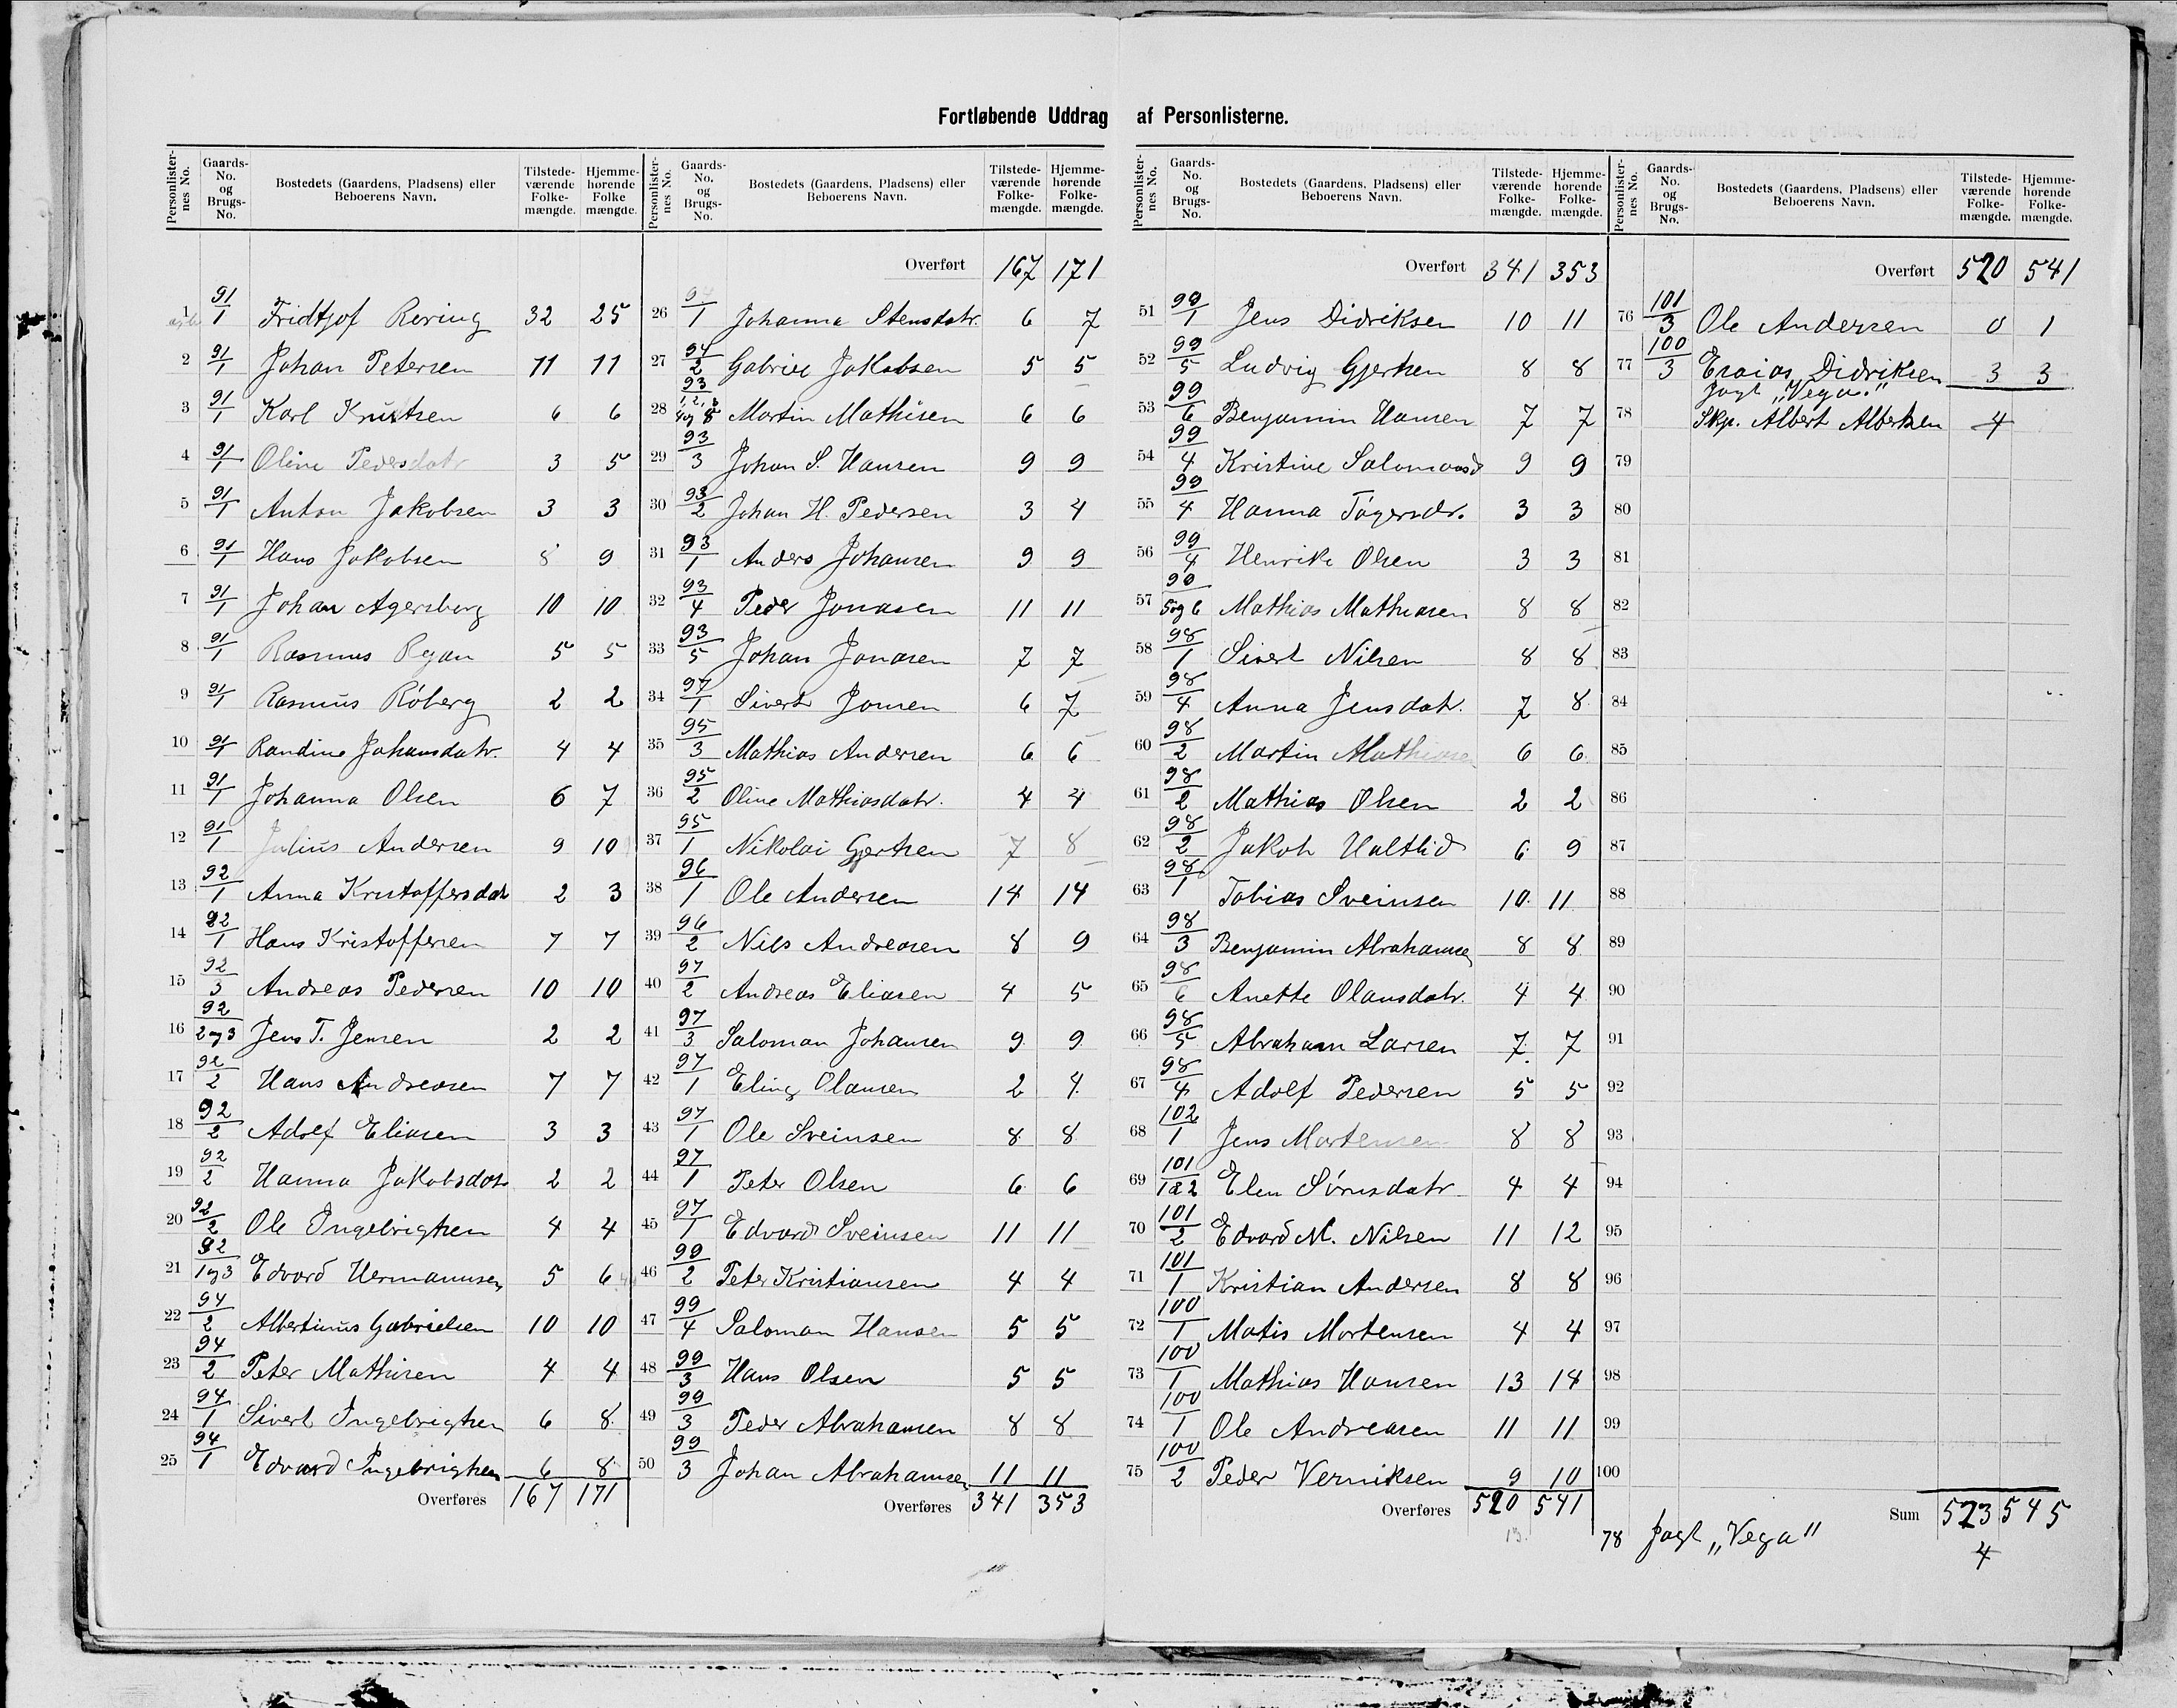 Fortløbende Uddrag af Personlisterne.
Personlister-nes No. Gaards-No. og Brugs-No. Bostedets (Gaardens, Pladsens) eller Beboerens Navn. Tilstede-værende Folke-mængde. Hjemme-hørende Folke mængde.
1 91/1 Fridtjof Rering 32 25
2 91/1 Johan Petersen 11 11
3 91/1 Karl Knutsen 6 6
4 91/1 Oline Pedersdatr 3 5
5 91/1 Anton Jakobsen 3 3
6 91/1 Hans Jakobsen 8 9
7 91/1 Johan Agersberg 10 10
8 91/1 Rasmus Ryan 5 5
9 91/1 Rasmus Röberg 2 2
10 91/1 Randine Johansdatr. 4 4
11 91/1 Johanna Olsen 6 7
12 91/1 Julius Andersen 9 10
13 92/1 Anna Kristoffersdatr 2 3
14 92/1 Hans Kristoffersen 7 7
15 92/3 Andreas Pedersen 10 10
16 92/2og3 Jens T. Jensen 2 2
17 92/2 Hans Andreasen 7 7
18 92/2 Adolf Eliasen 3 3
19 92/2 Hanna Jakobsdatr 2 2
20 92/2 Ole Ingebrigtsen 4 4
21 92/1og3 Edvard Hermannsen 5 6
22 94/2 Albertinus Gabrielsen 10 10
23 94/2 Peter Mathisen 4 4
24 94/1 Sivert Ingebrigtsen 6 8
25 94/1 Edvard Ingebrigtsen 6 8
Overføres 167 171
Personlister-nes No. Gaards-No. og Brugs-No. Bostedets (Gaardens, Pladsens) eller Beboerens Navn. Tilstede-værende Folke-mængde. Hjemme-hørende Folke-mængde.
Overført 167 171
26 94/1 Johanna Stensdatr. 6 7
27 94/2 Gabriel Jakobsen 5 5
28 93/1,2,3 4og5 Martin Mathisen 6 6
29 93/3 Johan S. Hansen 9 9
30 93/2 Johan H. Pedersen 3 4
31 93/1 Anders Johansen 9 9
32 93/4 Peder Jonasen 11 11
33 93/5 Johan Jonasen 7 7
34 97/1 Sivert Jonsen 6 7
35 95/3 Mathias Andersen 6 6
36 95/2 Oline Mathiasdatr. 4 4
37 95/1 Nikolai Gjertsen 7 8
38 96/1 Ole Andersen 14 14
39 96/2 Nils Andreasen 8 9
40 97/2 Andreas Eliasen 4 5
41 97/3 Saloman Johansen 9 9
42 97/1 Eling Olausen 2 4
43 97/1 Ole Sveinsen 8 8
44 97/1 Peter Olsen 6 6
45 97/1 Edvard Sveinsen 11 11
46 99/2 Peter Kristiansen 4 4
47 99/4 Saloman Hansen 5 5
48 99/3 Hans Olsen 5 5
49 99/3 Peder Abrahamsen 8 8
50 99/3 Johan Abrahamsen 11 11
Overføres 341 353
Personlister-nes No. Gaards-No. og Brugs-No. Bostedets (Gaardens, Pladsens) eller Beboerens Navn. Tilstede-værende Folke-mængde. Hjemme-hørende Folke-mængde.
Overført 341 353
51 99/1 Jens Didriksen 10 11
52 99/5 Ludvig Gjertsen 8 8
53 99/6 Benjamin Hansen 7 7
54 99/4 Kristine Salomonsd 9 9
55 99/4 Hanna Tögersdr. 3 3
56 99/4 Henrike Olsen 3 3
57 99/5og6 Mathias Mathiasen 8 8
58 98/1 Sivert Nilsen 8 8
59 98/4 Anna Jensdatr. 7 8
60 98/2 Martin Mathiasen 6 6
61 98/2 Mathias Olsen 2 2
62 98/2 Jakob Haltlid 6 9
63 98/1 Tobias Sveinsen 10 11
64 98/3 Benjamin Abrahamsen 8 8
65 98/6 Anette Olausdatr. 4 4
66 98/5 Abraham Larsen 7 7
67 98/4 Adolf Pedersen 5 5
68 102/1 Jens Mortensen 8 8
69 101/1&2 Elen Sörnsdatr 4 4
70 101/2 Edvard M. Nilsen 11 12
71 101/1 Kristian Andersen 8 8
72 100/1 Matis Mortensen 4 4
73 100/1 Mathias Hansen 13 14
74 100/1 Ole Andreasen 11 11
75 100/2 Peder Verniksen 9 10
Overføres 520 541
13.
Personlister-nes No. Gaards-No. og Brugs-No. Bostedets (Gaardens, Pladsens) eller Beboerens Navn. Tilstede-værende Folke-mængde. Hjemme-hørende Folke-mængde.
Overført 520 541
76 101/3 Ole Andersen 0 1
77 100/3 Esaias Didriksen 3 3
Jagt „Vega"
78 Skp. Albert Albertsen 4
79
80
81
82
83
84
85
86
87
88
89
90
91
92
93
94
95
96
97
98
99
100
Sum 523 545
78 Jagt „Vega" 4